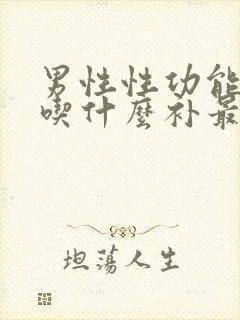 男性性功能
喫什麼补最
坦荡人生